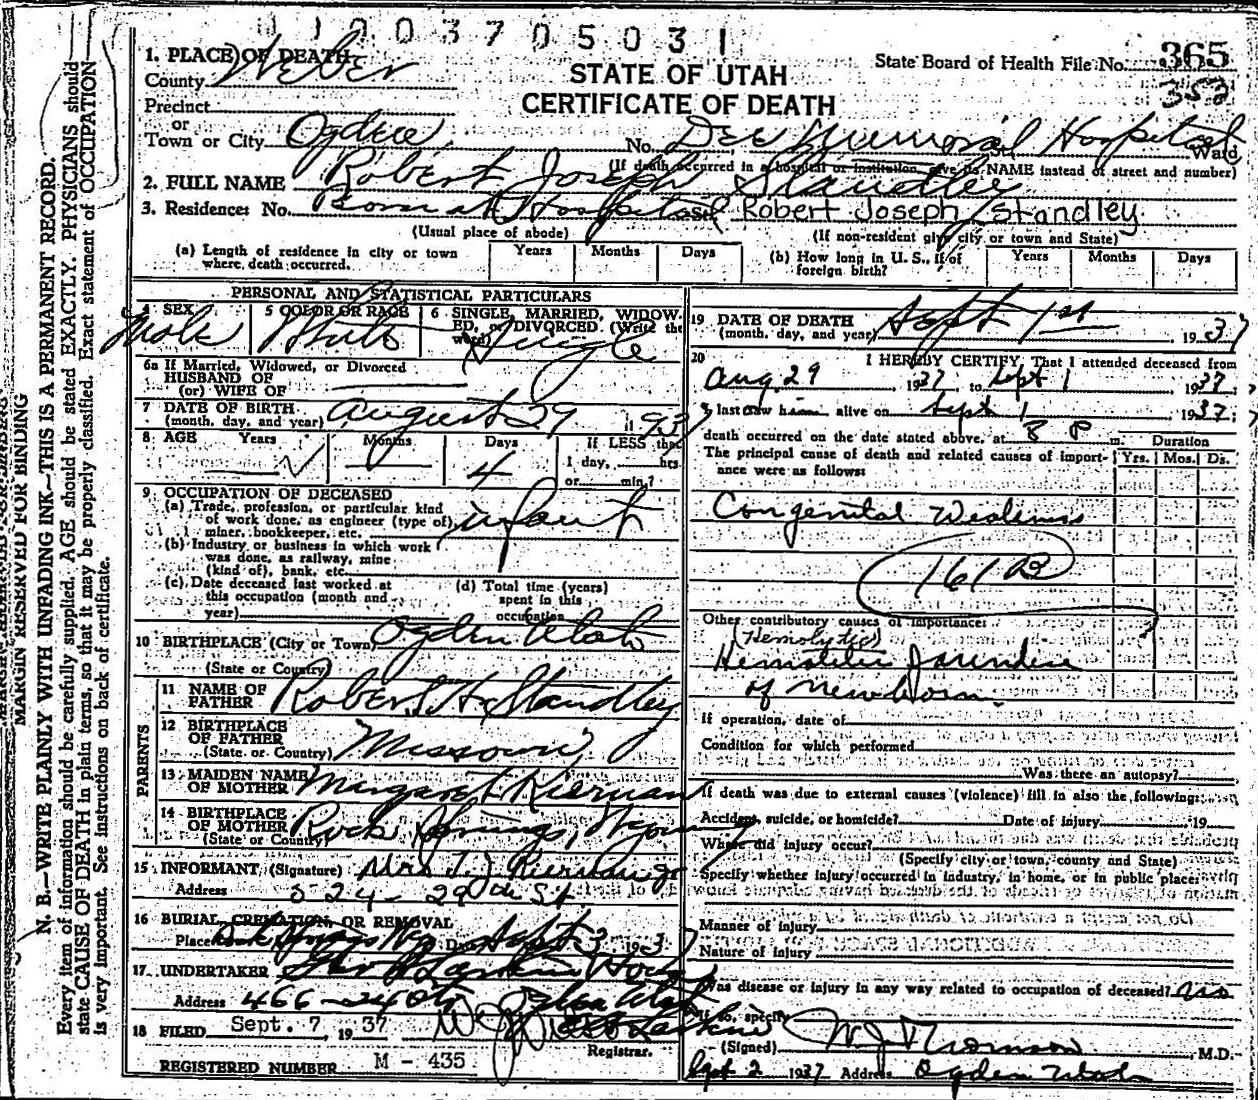 11003705031
1. PLACE OF DEATH
County Weber
STATE OF UTAH
CERTIFICATE OF DEATH
State Board of Health File No. 365
353
Precinct
or
Town or City Ogden No. Dee Memorial Hospital Ward
(If death occurred in a hospital or institution, give its NAME instead of street and number)
2. FULL NAME Robert Joseph Standley
3. Residence: No. Born at Hospital St. Robert Joseph Standley
(Usual place of abode) (If non-resident give city or town and State)
(a) Length of residence in city or town where death occurred. Years Months Days
(b) How long in U. S., if of foreign birth? Years Months Days
PERSONAL AND STATISTICAL PARTICULARS
4 SEX Male
5 COLOR OR RACE White
6 SINGLE, MARRIED, WIDOWED, or DIVORCED (Write the word) Single
6a If Married, Widowed, or Divorced
HUSBAND OF
(or) WIFE OF
7 DATE OF BIRTH (month, day, and year) August 29 1937
8 AGE Years Months Days 4 If LESS than 1 day, hrs. or min.?
9 OCCUPATION OF DECEASED
(a) Trade, profession, or particular kind of work done, as engineer (type of) miner, bookkeeper, etc. infant
(b) Industry or business in which work was done, as railway, mine (kind of), bank, etc.
(c) Date deceased last worked at this occupation (month and year)
(d) Total time (years) spent in this occupation
10 BIRTHPLACE (City or Town) Ogden Utah
(State or Country)
PARENTS
11 NAME OF FATHER Robert H. Standley
12 BIRTHPLACE OF FATHER (State or Country) Missouri
13 MAIDEN NAME OF MOTHER Margaret Kiernan
14 BIRTHPLACE OF MOTHER (State or Country) Rock Springs, Wyoming
15 INFORMANT (Signature) Mrs T. J. Kiernan Jr
Address 524-29th St.
16 BURIAL, CREMATION, OR REMOVAL
Place Rock Springs Wyo Date Sept 3 1937
17 UNDERTAKER Larkin
Address 466-24th Utah
18 FILED Sept. 7, 1937
Registrar.
REGISTERED NUMBER M - 435
19 DATE OF DEATH (month, day, and year) Sept 1st 1937
20 I HEREBY CERTIFY, That I attended deceased from
Aug 29 1937 to Sept 1 1937,
I last saw him alive on Sept 1 1937;
death occurred on the date stated above, at 8 P m. Duration
The principal cause of death and related causes of importance were as follows: Yrs. Mos. Ds.
Congenital Weakness
161B
Other contributory causes of importance:
(Hemolytic)
Hemolytic Jaundice
of newborn
If operation, date of
Condition for which performed
Was there an autopsy?
If death was due to external causes (violence) fill in also the following:
Accident, suicide, or homicide? Date of injury 19
Where did injury occur?
(Specify city or town, county and State)
Specify whether injury occurred in industry, in home, or in public place:
Manner of injury
Nature of injury
Was disease or injury in any way related to occupation of deceased? no
If so, specify
(Signed) M.D.
Sept 2 1937 Address Ogden Utah
MARGIN RESERVED FOR BINDING
N. B.—WRITE PLAINLY WITH UNFADING INK—THIS IS A PERMANENT RECORD.
Every item of information should be carefully supplied. AGE should be stated EXACTLY. PHYSICIANS should
state CAUSE OF DEATH in plain terms, so that it may be properly classified. Exact statement of OCCUPATION
is very important. See instructions on back of certificate.